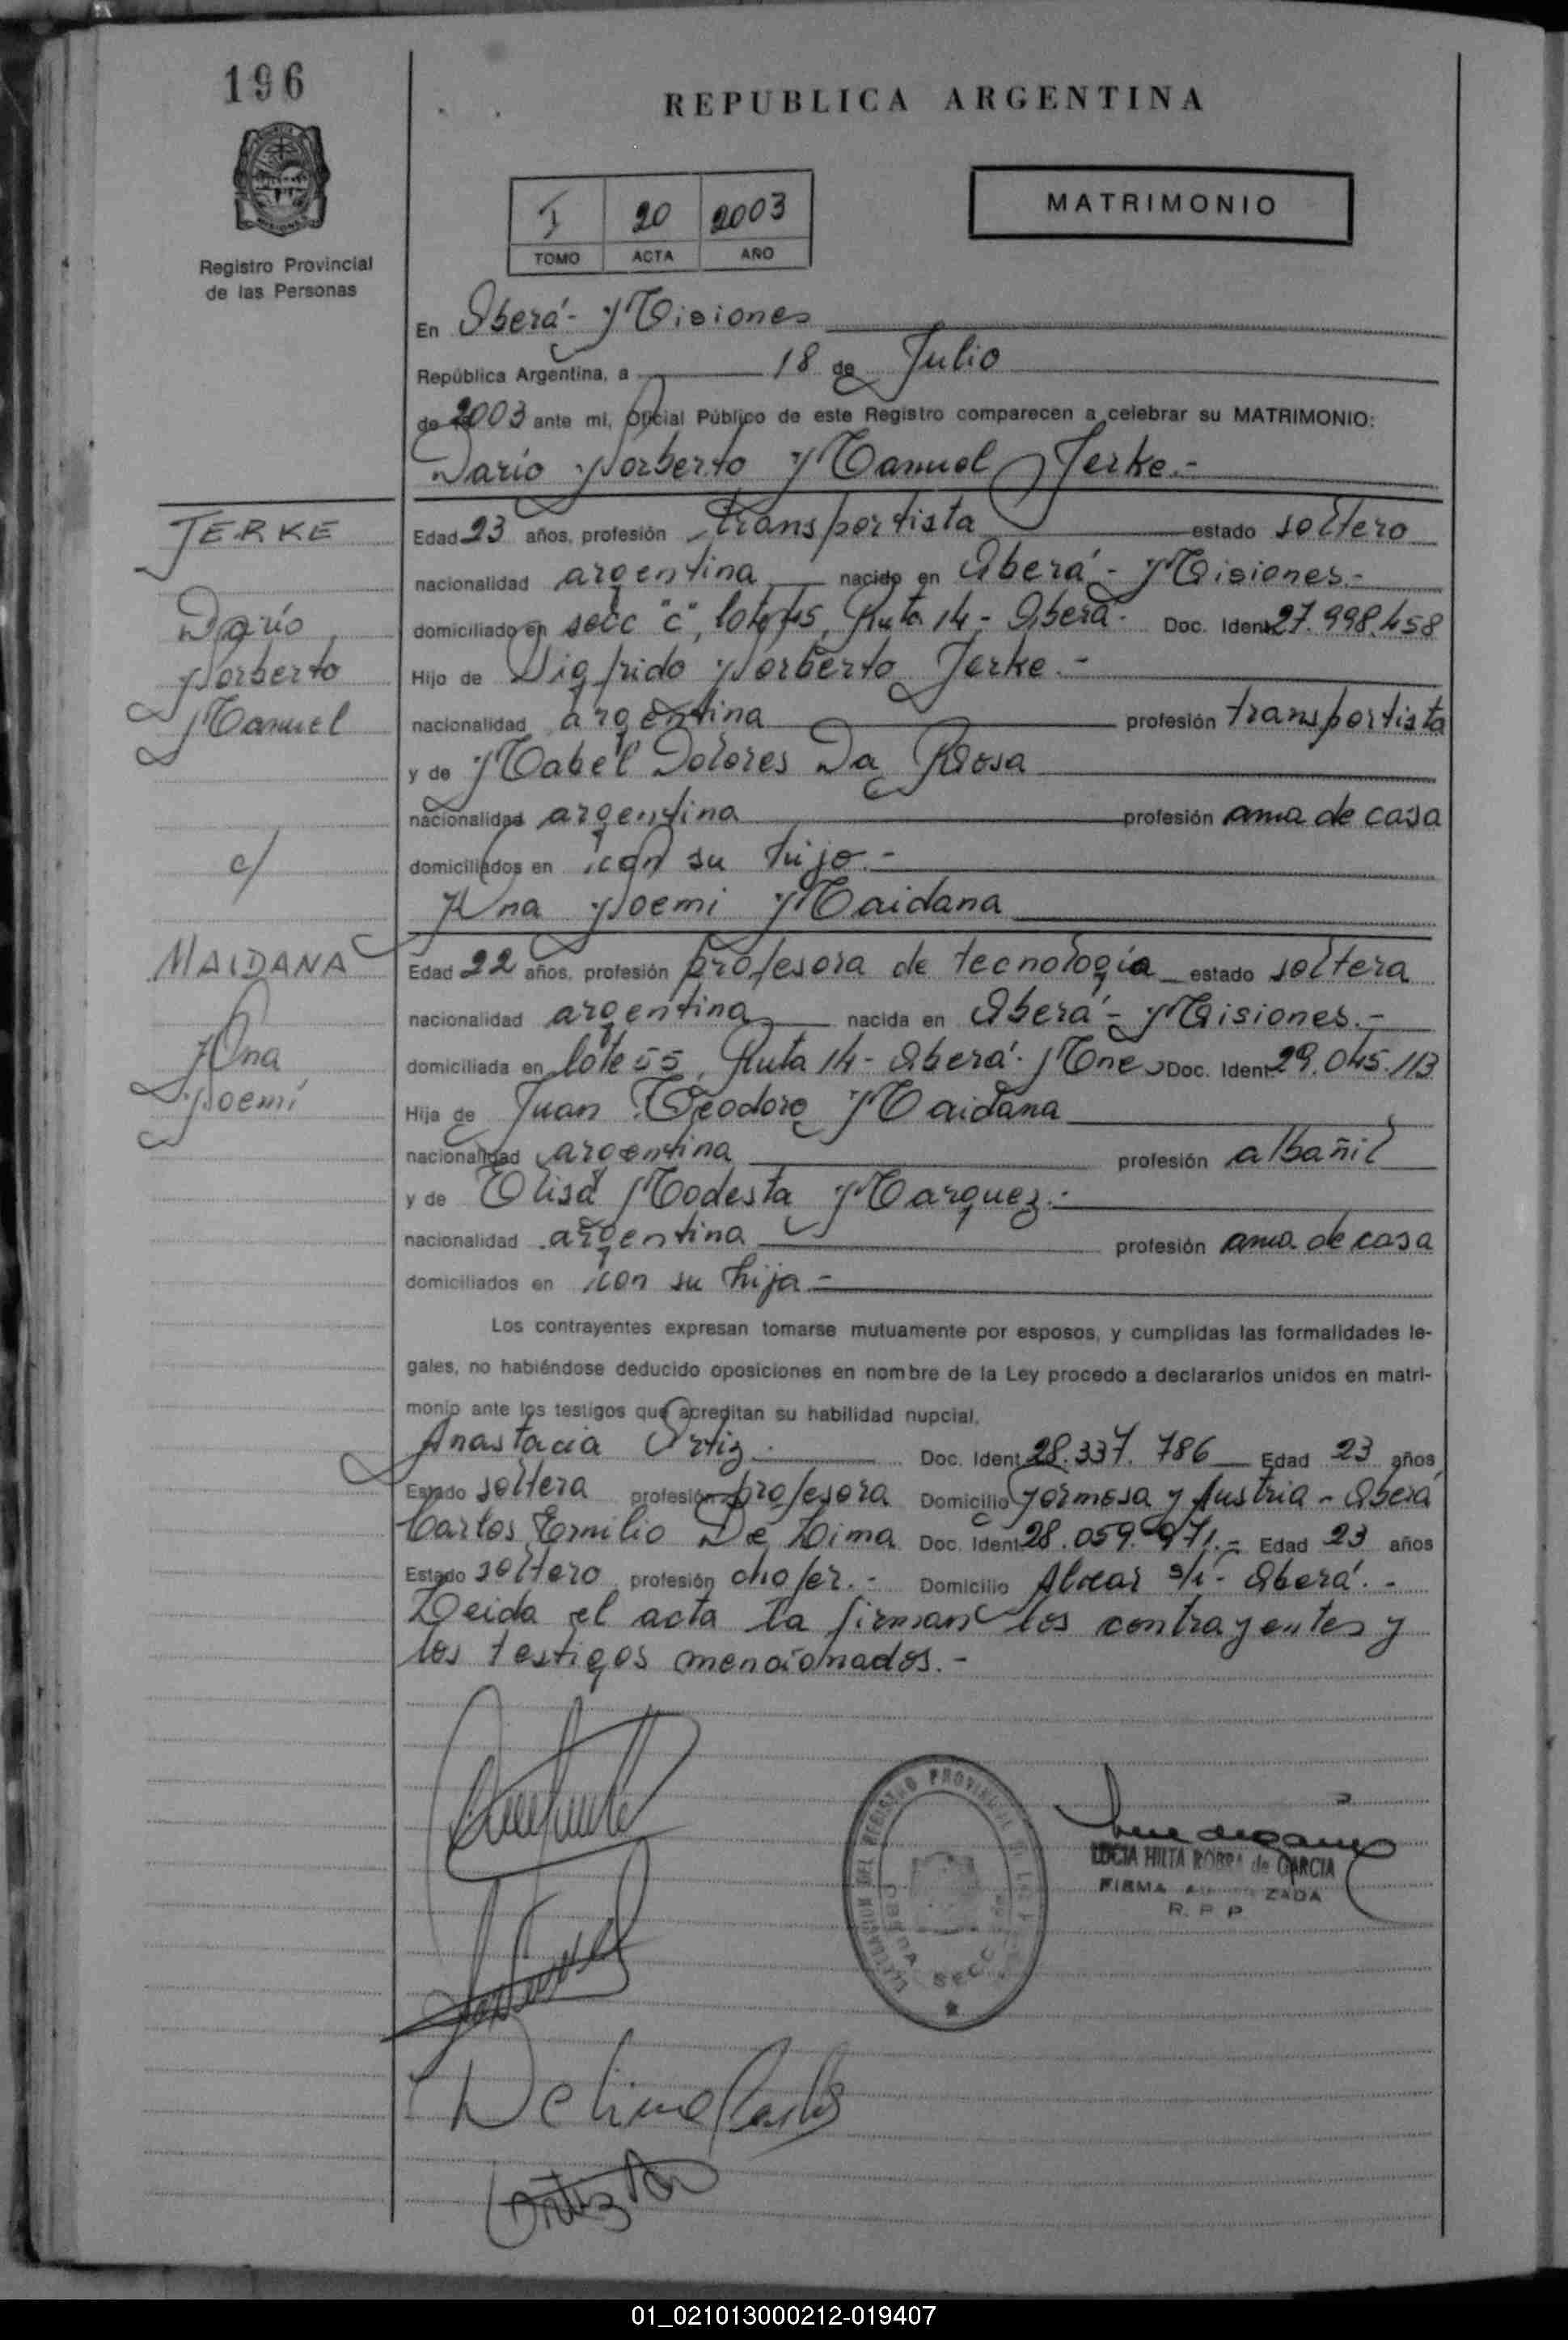 196
REPUBLICA ARGENTINA
MATRIMONIO
I 20 2003
TOMO ACTA AÑO
Registro Provincial
de las Personas
En Oberá - Misiones
República Argentina, a 18 de Julio
de 2003 ante mi, Oficial Público de este Registro comparecen a celebrar su MATRIMONIO:
Darío Norberto Manuel Jerke.-
JERKE
Darío
Norberto
Manuel
c/
MAIDANA
Ana
Noemí
Edad 23 años, profesión transportista estado soltero
nacionalidad argentina nacido en Oberá - Misiones.-
domiciliado en secc "c", lote 45, Ruta 14 - Oberá - Doc. Ident 27.998.458
Hijo de Sigfrido Norberto Jerke.-
nacionalidad argentina profesión transportista
y de Mabel Dolores Da Rosa
nacionalidad argentina profesión ama de casa
domiciliados en con su hijo.-
Ana Noemi Maidana
Edad 22 años, profesión profesora de tecnología estado soltera
nacionalidad argentina nacida en Oberá - Misiones.-
domiciliada en lote 55, Ruta 14 - Oberá - Mnes Doc. Ident 29.045.113
Hija de Juan Teodoro Maidana
nacionalidad argentina profesión albañil
y de Elisa Modesta Marquez.-
nacionalidad argentina profesión ama de casa
domiciliados en con su hija -
Los contrayentes expresan tomarse mutuamente por esposos, y cumplidas las formalidades le-
gales, no habiéndose deducido oposiciones en nombre de la Ley procedo a declararlos unidos en matri-
monio ante los testigos que acreditan su habilidad nupcial.
Anastacia Ortiz.- Doc. Ident 28.337.786 Edad 23 años
Estado soltera profesión profesora Domicilio Formosa y Austria - Oberá
Carlos Emilio De Lima Doc. Ident 28.059.971.- Edad 23 años
Estado soltero profesión chofer.- Domicilio Alvear s/n - Oberá.-
Leida el acta la firman los contrayentes y
los testigos mencionados.-
De Lima Carlos
Ortiz
REGISTRO PROVINCIAL DE LAS
OBERA
SECC
LUCIA HILTA ROBRA de GARCIA
FIRMA AUTORIZADA
R. P. P.
01_021013000212-019407